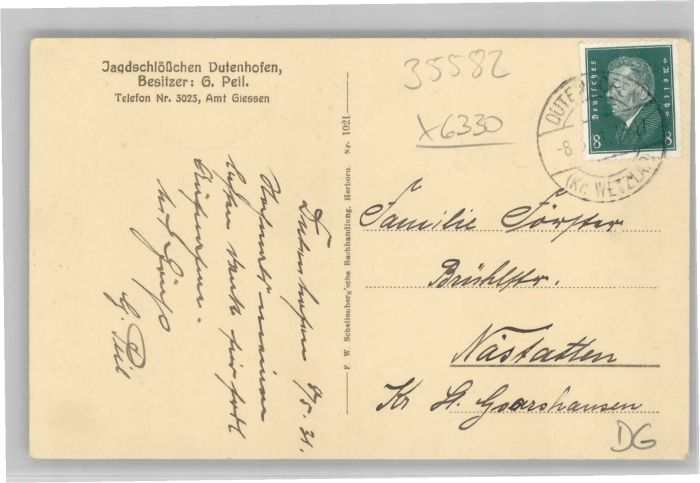 Jagdschlößchen Dutenhofen,
Besitzer: G. Peil.
Telefon Nr. 3023, Amt Giessen
35582
x6330
Deutsches Reich
8 8
DUTENHOFEN
-8.
(Kr. WETZLAR)
F. W. Schellenberg'sche Buchhandlung, Herborn. Nr. 1021
Dutenhofen 8/5. 31.
Nochmals meinen
lieben Dank für
mit Gruß
G. Peil
Familie Förster
Brühlstr.
Nastätten
Kr St. Goarshausen
DG